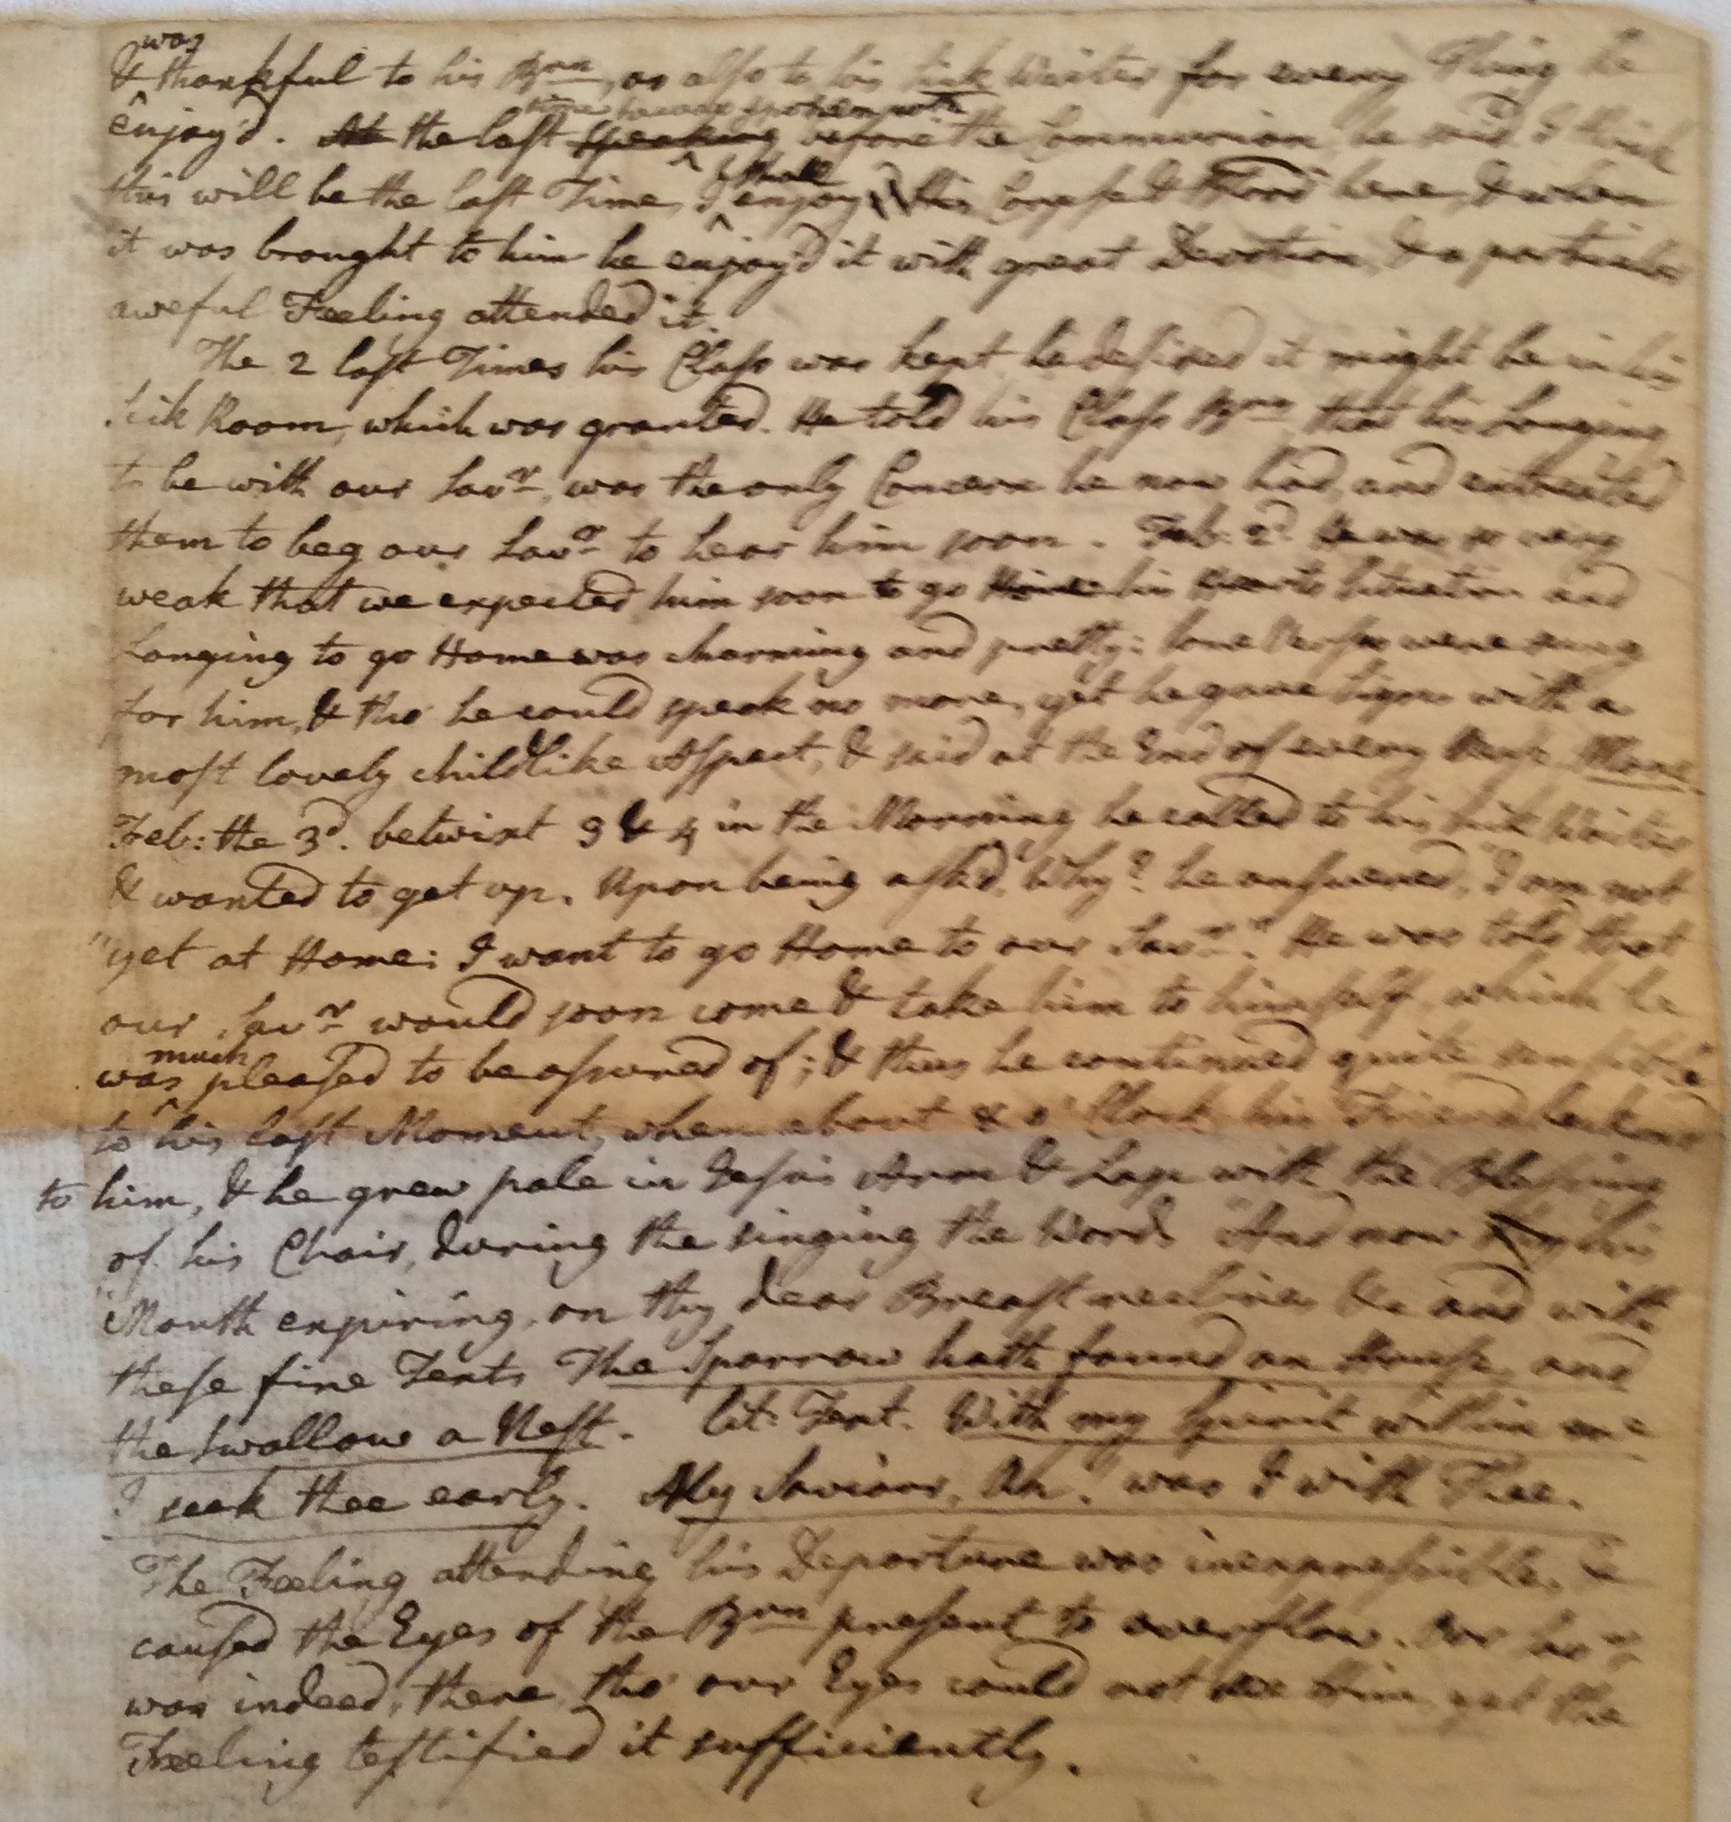 & was thankful to his Brn, as also to his sick Waiter for every Thing he
enjoy'd. At the last time he was spoken with speaking before the Communion, he said, I think
this will be the last Time, I shall enjoy this here, & when
it was brought to him he enjoy'd it with great Devotion, & a particular
aweful Feeling attended it.
The 2 last Times his Class was kept, he desired it might be in his
sick Room, which was granted. He told his Class Brn that his Longing
to be with our Savr. was the only Concern he now had, and entreated
them to beg our Savr. to hear him soon. Feb: 2d. He was so very
weak that we expected him soon to go Home his Hearts Situation and
Longing to go Home was charming and pretty: some Verses were sung
for him, & tho' he could speak no more, yet he gave Signs with a
most lovely childlike Aspect, & said at the End of every Verse More
Feb: the 3d. betwixt 3 & 4 in the Morning he called to his sick Waiter
& wanted to get up. Upon being ask'd, Why? he answered, "I am not
"yet at Home: I want to go Home to our Savr." He was told that
our Savr. would soon come & take him to himself, which he
was much pleased to be assured of; & thus he continued quite sensible
to his last Moment, when about o'Clock his Friend beckon'd
to him, & he grew pale in Jesu's Arm & Lap with the Blessing
of his Choir, during the singing the Words "And now his
Mouth expiring, on thy dear Breast reclines &c and with
these fine Texts The Sparrow hath found an House, and
the Swallow a Nest. Lit: Text. With my Spirit within me
I seek thee early. My Saviour, Oh! was I with Thee.
The Feeling attending his Departure was inexpressible, &
caused the Eyes of the Brn present to overflow. Our Savr
was indeed, there, tho' our Eyes could not see Him, yet the
Feeling testified it sufficiently.